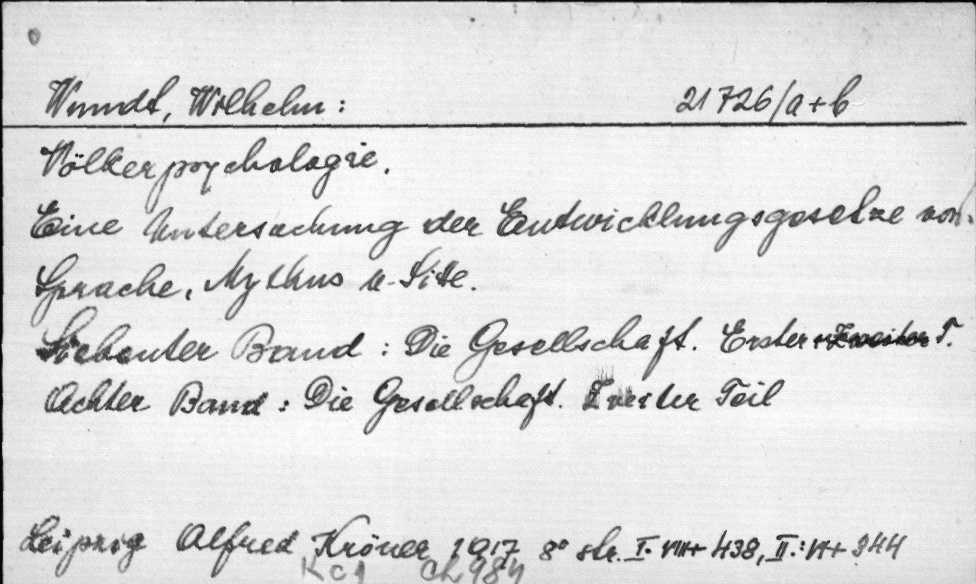 Wundt, Wilhelm: 21726/a+b
Völkerpsychologie.
Eine Untersuchung der Entwicklungsgesetze von
Sprache, Mythus u. Sitte.
Siebenter Band: Die Gesellschaft. Erster + Zweiter T.
Achter Band: Die Gesellschaft. Zweiter Teil
Leipzig Alfred Kröner 1917 8° str. I. VIII+438, II.: VI+344